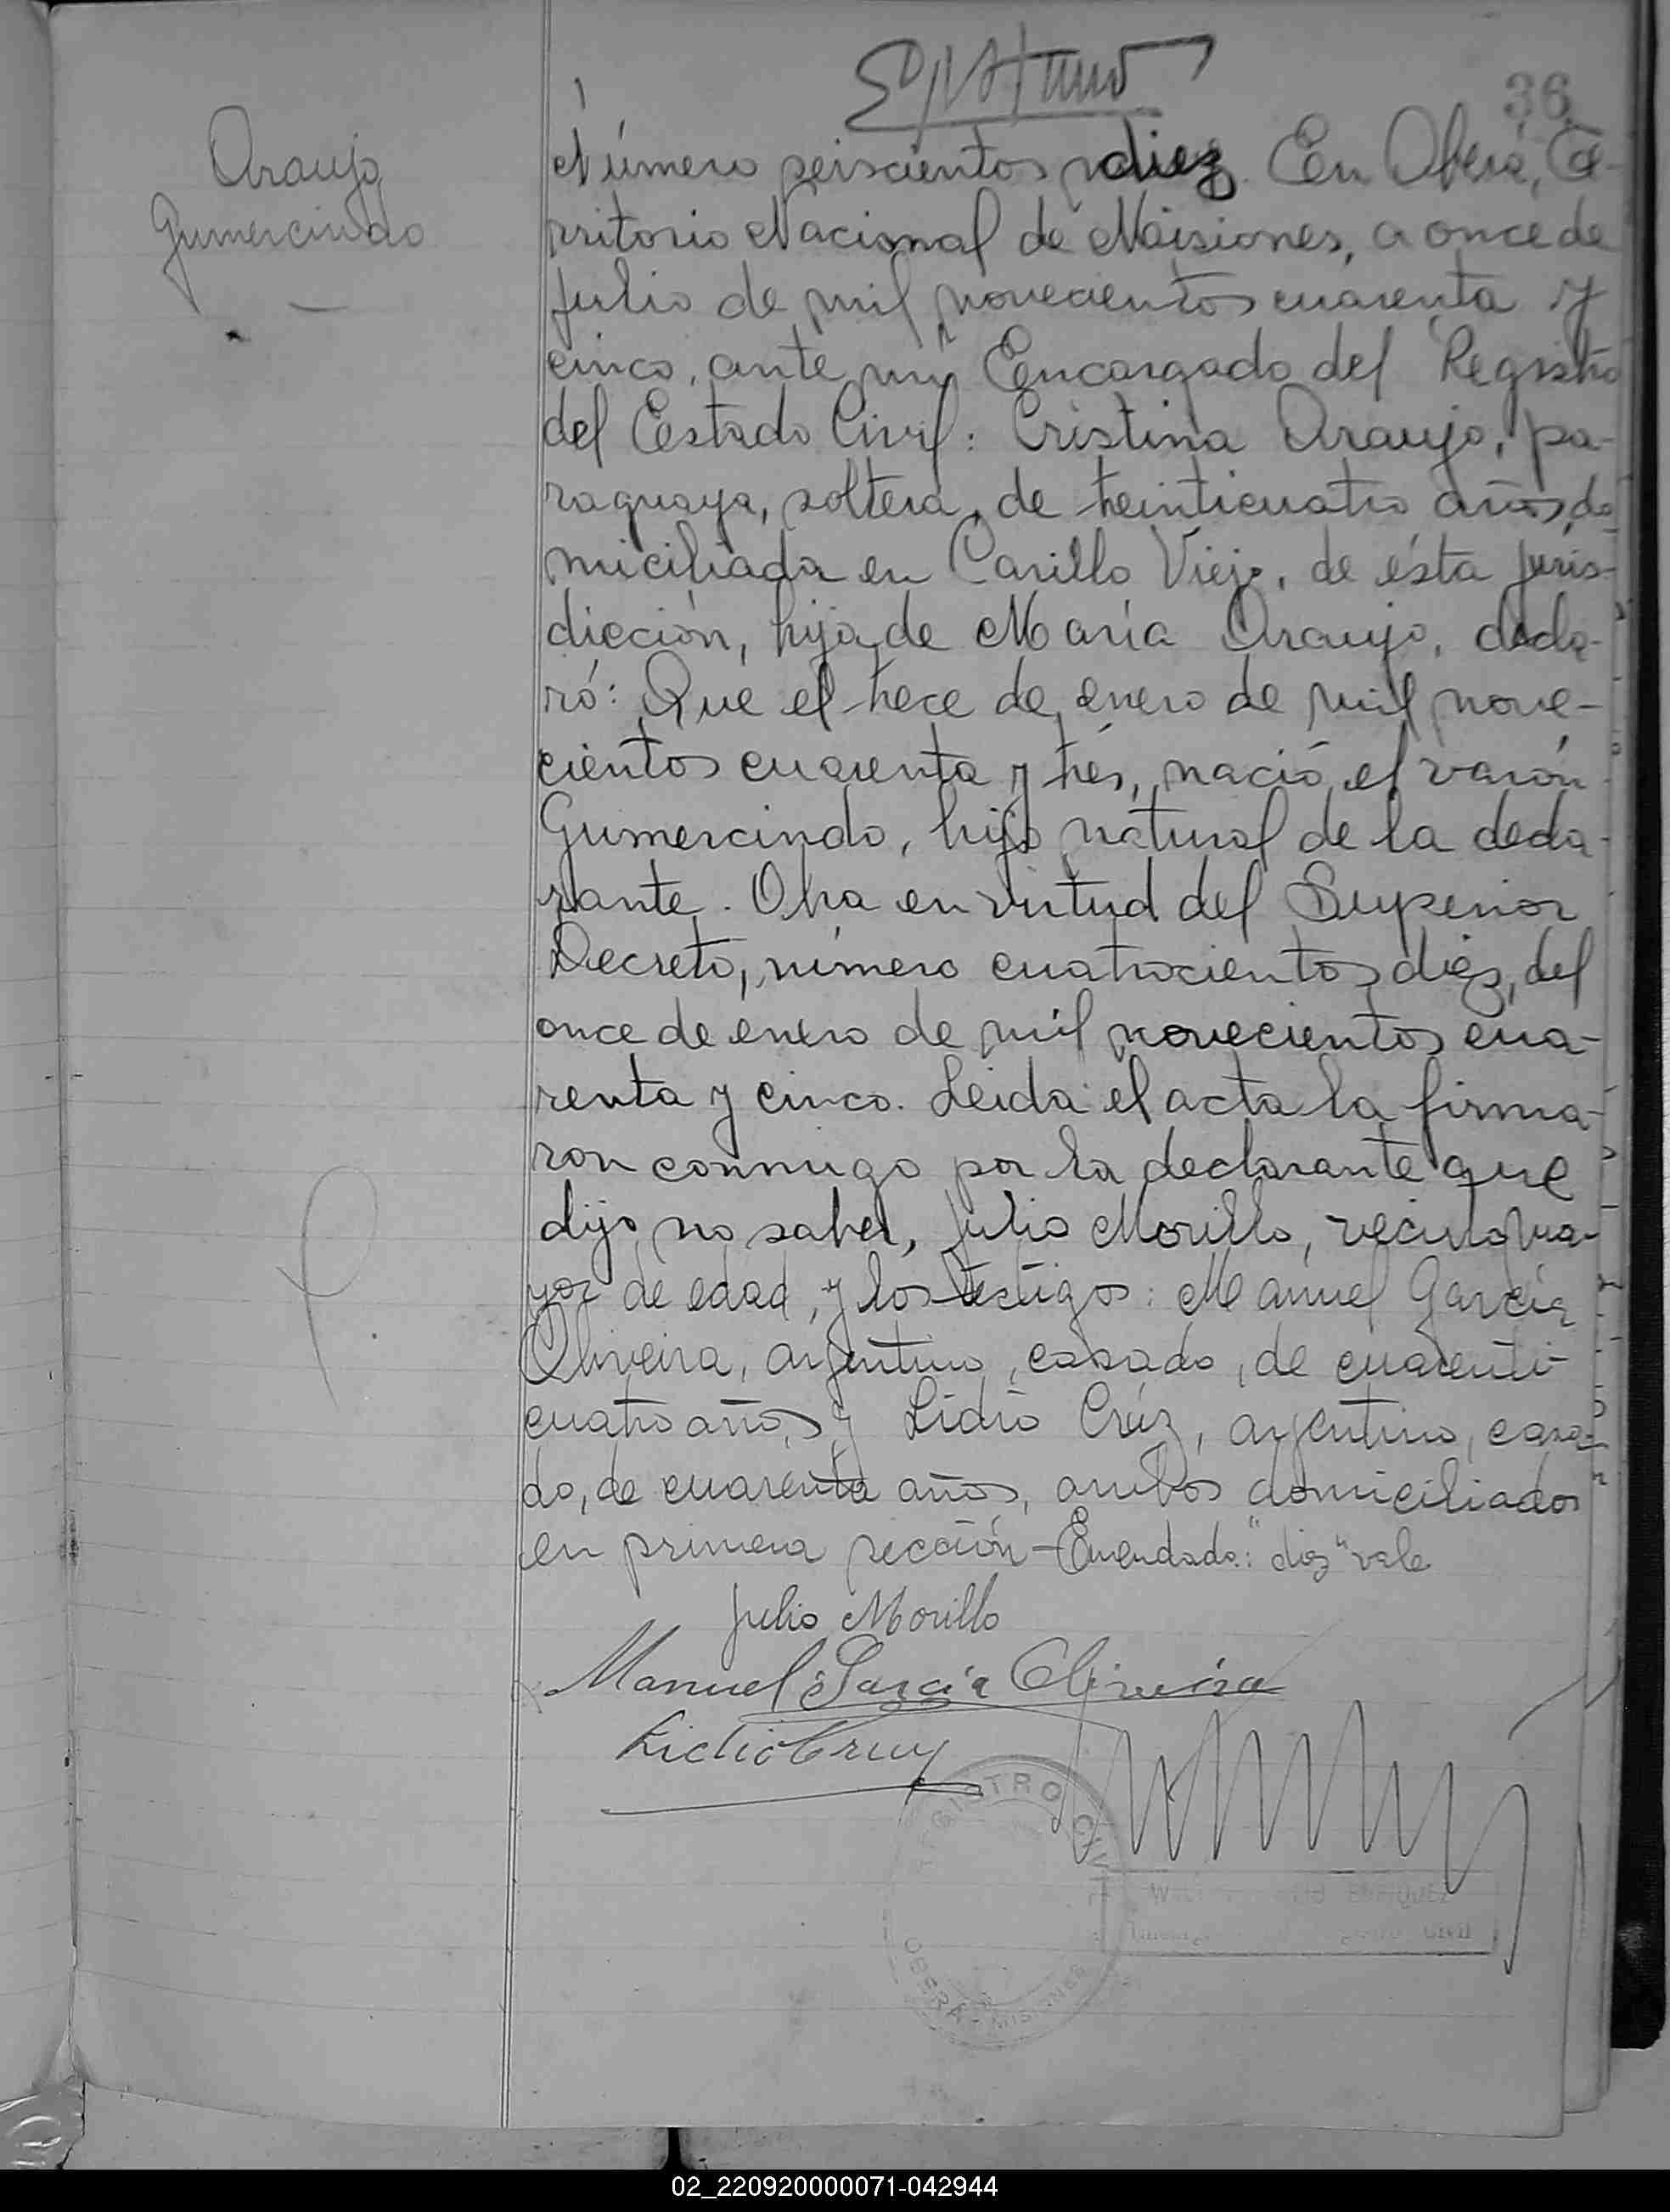 36
Araujo
Gumercindo
Número seiscientos diez. En Oberá, Te-
rritorio Nacional de Misiones, a once de
julio de mil novecientos cuarenta y
cinco, ante mí Encargado del Registro
del Estado Civil: Cristina Araujo, pa-
raguaya, soltera, de treinticuatro años, do
miciliada en Carillo Viejo, de ésta juris-
dicción, hija de María Araujo, decla-
ró: Que el trece de enero de mil nove-
cientos cuarenta y trés, nació el varón
Gumercindo, hijo natural de la decla-
rante. Obra en virtud del Superior
Decreto, número cuatrocientos diez, del
once de enero de mil novecientos cua-
renta y cinco. Leida el acta la firma-
ron conmigo por la declarante que
dijo no saber, Julio Morillo, vecino, ma-
yor de edad, y los testigos: Manuel García
Oliveira, argentino, casado, de cuarenti-
cuatro años, y Lidio Crúz, argentino, casa-
do, de cuarenta años, ambos domiciliados
en primera sección - Enmendado: "diez" vale
Julio Morillo
Manuel García Oliveira
Lidio Cruz
REGISTRO CIVIL
OBERA - MISIONES
ENRIQUEZ
Civil
02_220920000071-042944